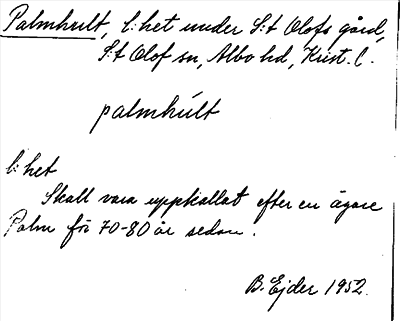 Palmhult, l:het under S:t Olofs gård,
S:t Olof sn, Albo hd, Krist. l.
palmhúlt
l:het
Skall vara uppkallat efter en ägare
Palm för 70-80 år sedan.
B. Ejder 1952.